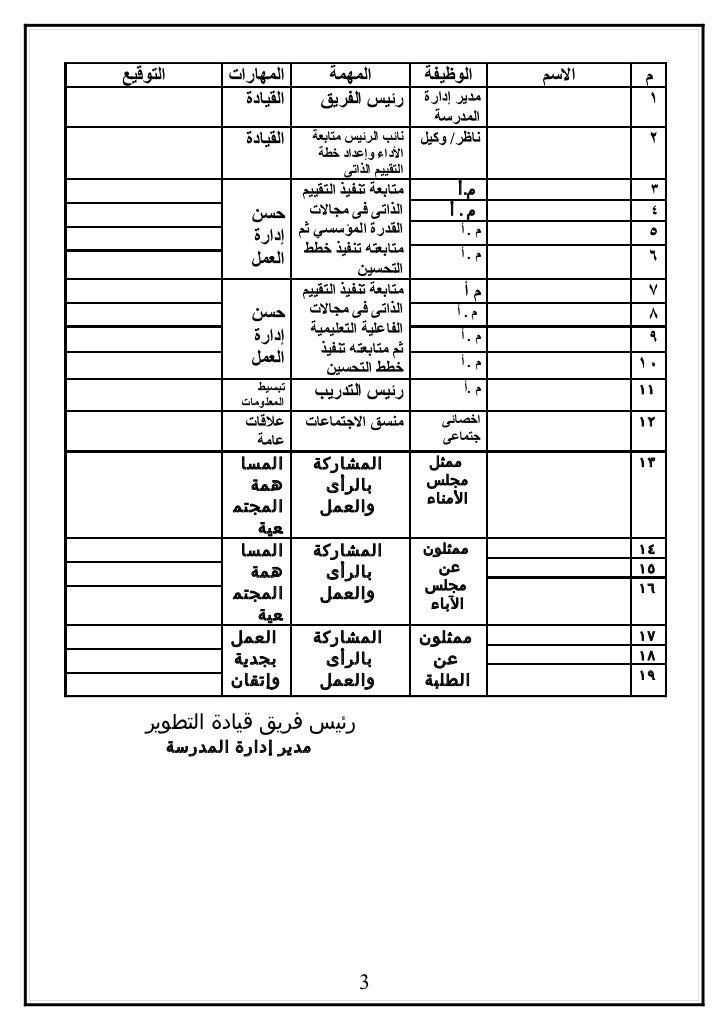 م الاسم الوظيفة المهمة المهارات التوقيع
١ مدير إدارة المدرسة رئيس الفريق القيادة
٢ ناظر/ وكيل نائب الرئيس متابعة الأداء وإعداد خطة التقييم الذاتى القيادة
٣ م.أ متابعة تنفيذ التقييم الذاتى فى مجالات القدرة المؤسسي ثم متابعته تنفيذ خطط التحسين حسن إدارة العمل
٤ م . أ
٥ م . أ
٦ م . أ
٧ م أ متابعة تنفيذ التقييم الذاتى فى مجالات الفاعلية التعليمية ثم متابعته تنفيذ خطط التحسين حسن إدارة العمل
٨ م . أ
٩ م . أ
١٠ م . أ
١١ م .أ رئيس التدريب تبسيط المعلومات
١٢ اخصائى جتماعى منسق الاجتماعات علاقات عامة
١٣ ممثل مجلس الأمناء المشاركة بالرأى والعمل المسا همة المجتم عية
١٤ ممثلون عن مجلس الآباء المشاركة بالرأى والعمل المسا همة المجتم عية
١٥
١٦
١٧ ممثلون عن الطلبة المشاركة بالرأى والعمل العمل بجدية وإتقان
١٨
١٩
رئيس فريق قيادة التطوير
مدير إدارة المدرسة
3